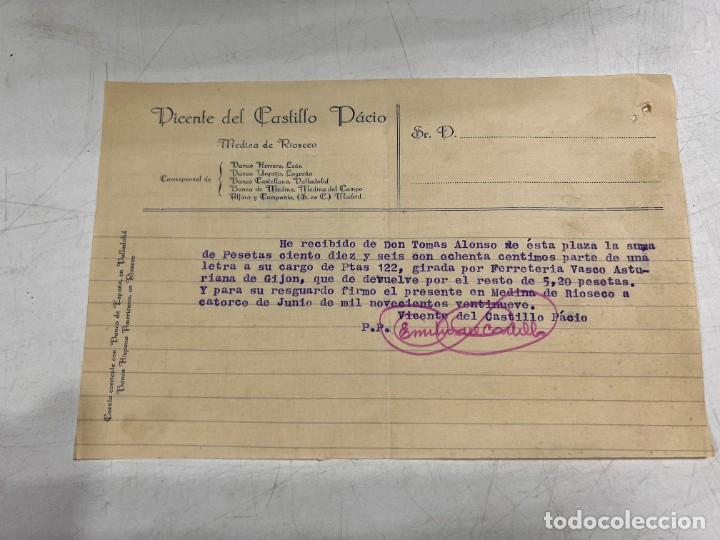 Vicente del Castillo Pácio
Medina de Rioseco
Corresponsal de
Banco Herrero, León
Banco Urquijo, Logroño
Banco Castellano, Valladolid
Banca de Medina, Medina del Campo
Alfaro y Compañía, (S. en C.) Madrid
Sr. D.
He recibido de Don Tomas Alonso de ésta plaza la suma
de Pesetas ciento diez y seis con ochenta centimos parte de una
letra a su cargo de Ptas 122, girada por Ferreteria Vasco Astu-
riana de Gijon, que devuelve por el resto de 5,20 pesetas.
Y para su resguardo firmo el presente en Medina de Rioseco a
catorce de Junio de mil novecientos ventinueve.
Vicente del Castillo Pácio
P.P. Emilio del Castillo
Cuenta corriente con Banco de España, en Valladolid
Banco Hispano Americano, en Rioseco
todocoleccion